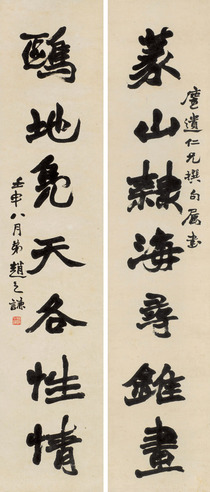 塵遺仁兄撰句屬書
篆山隸海尋錐畫
鷗地鳧天各性情
壬申八月弟趙之謙